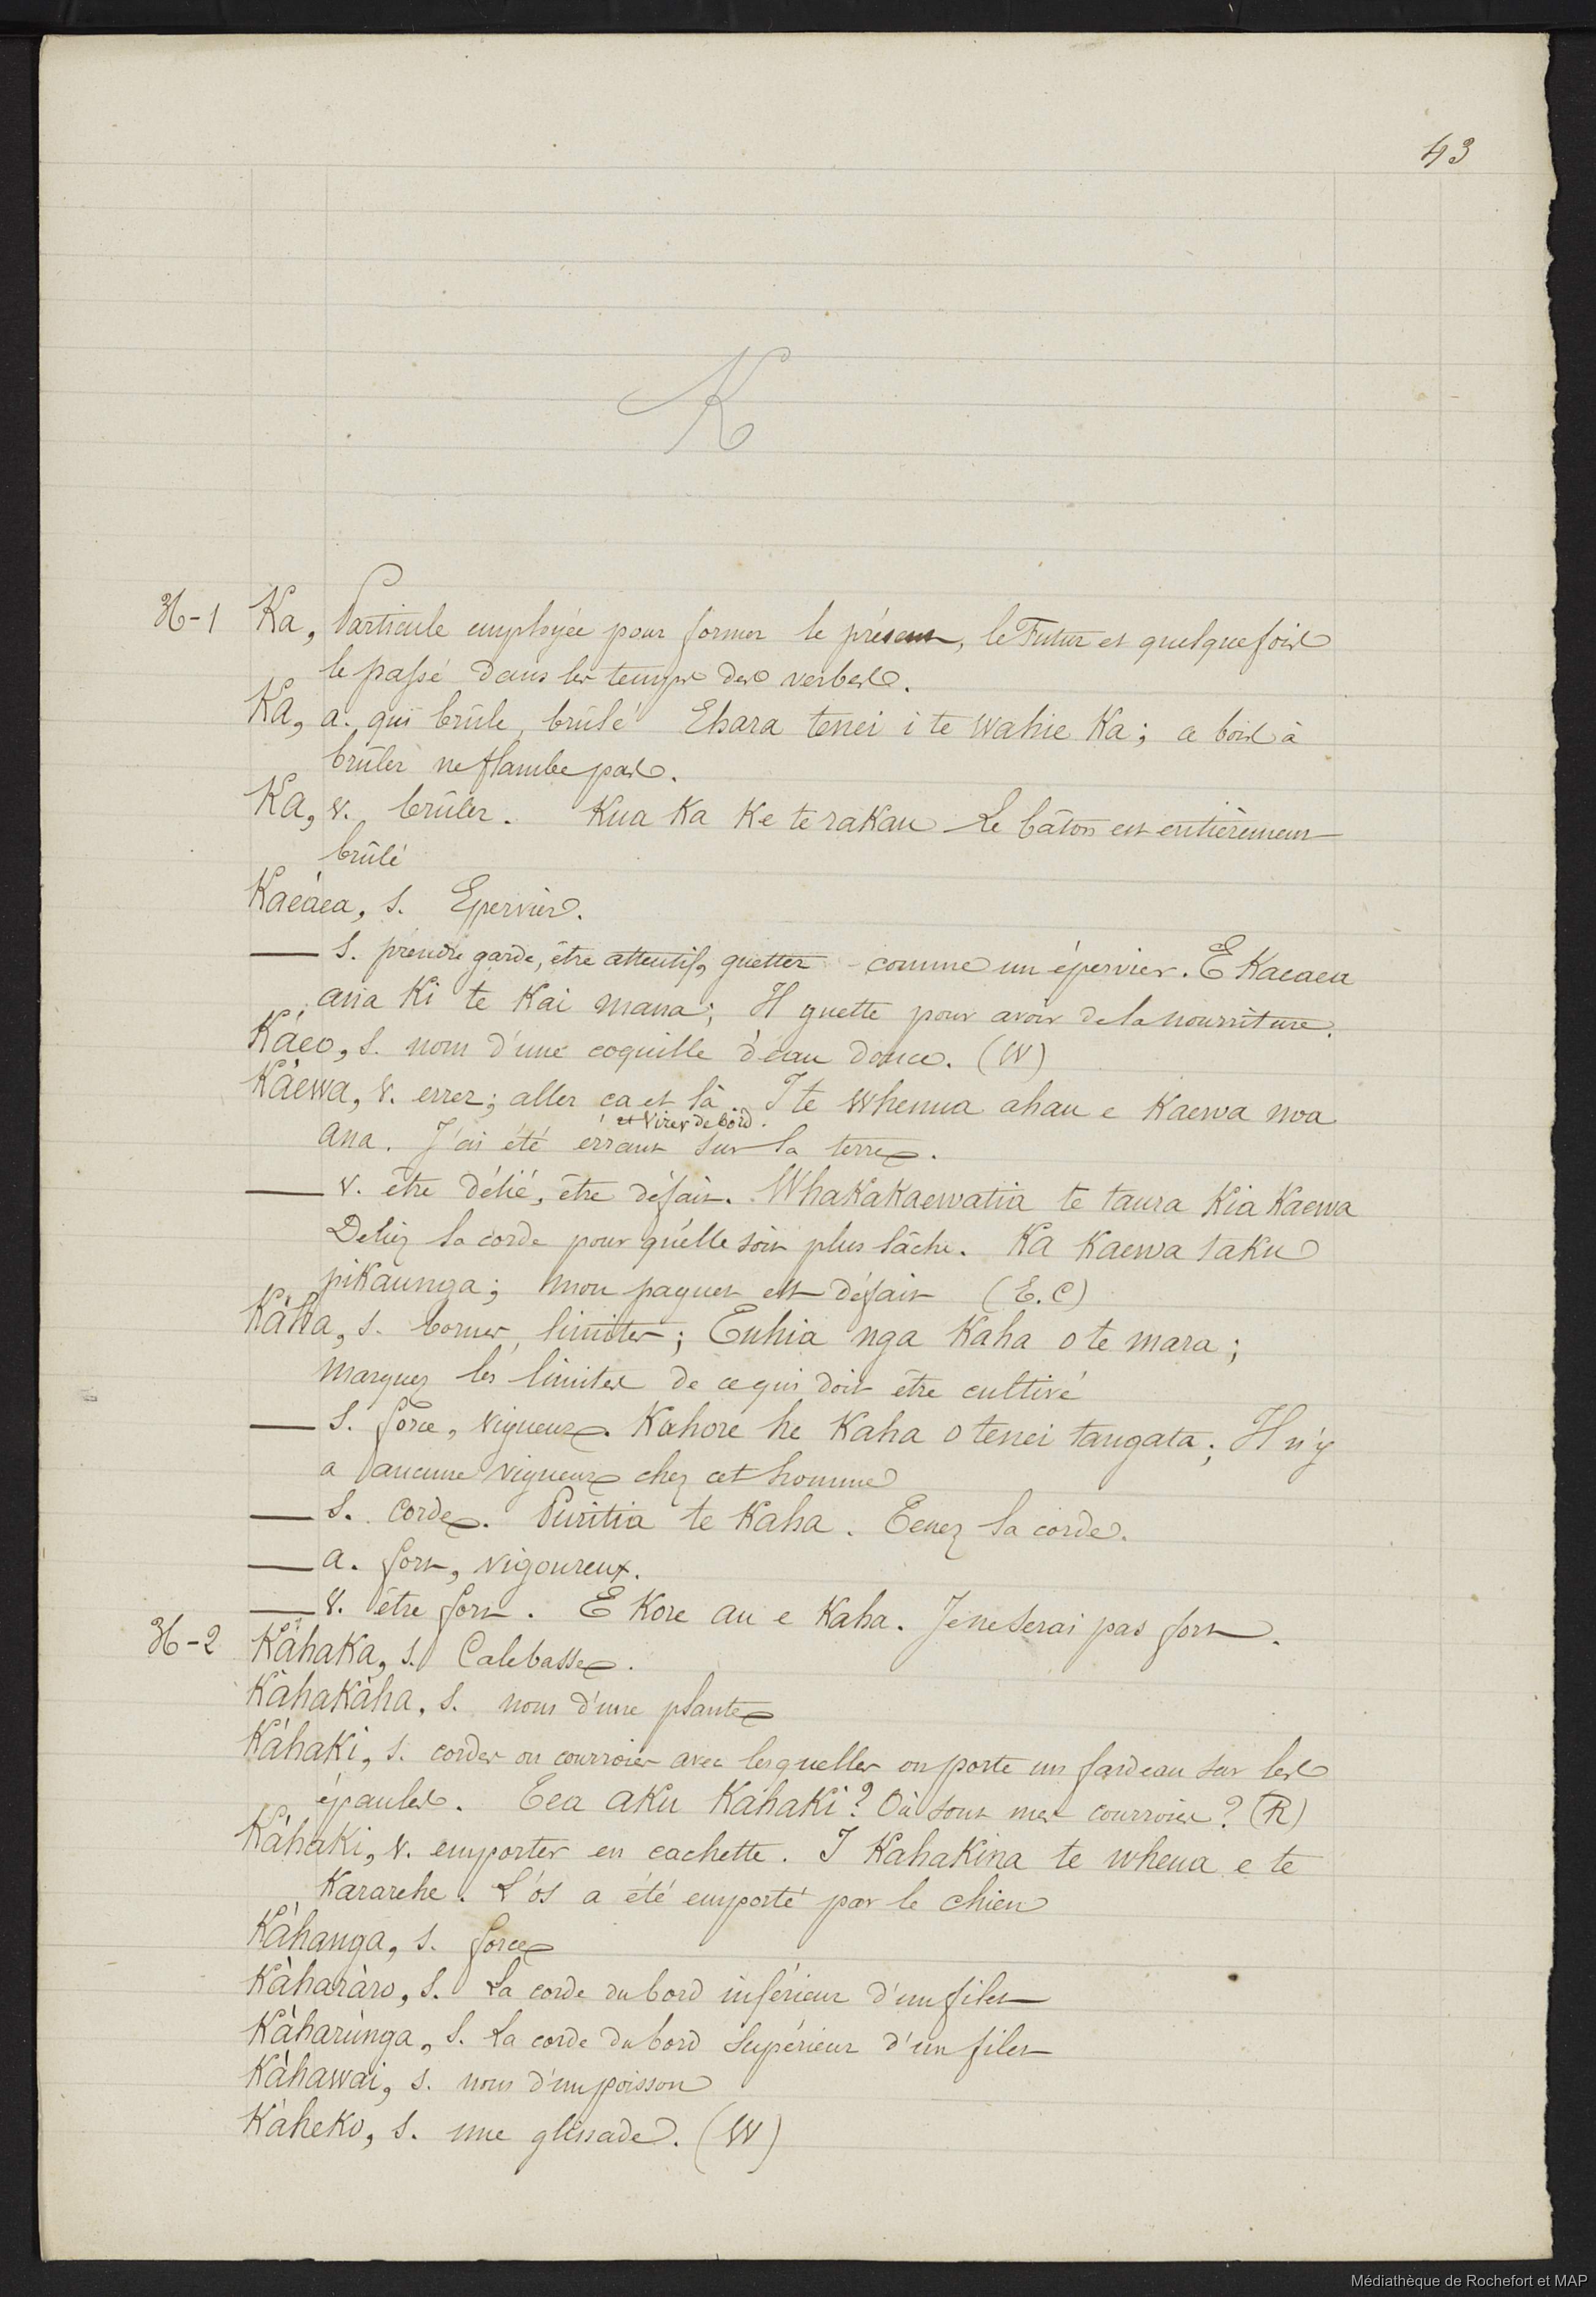 43
K
36-1 Ka, Particule employée pour former le présent, le Futur et quelquefois
le passé dans les temps des verbes.
Ka, a. qui brûle, brûlé Ehara tenei i te wahie Ka; ce bois à
brûler ne flambe pas.
Ka, v. brûler. Kua Ka Ke te raKau Le bâton est entièrement
brûlé
Kaeàea, s. Epervier.
— s. prendre garde, être attentif, guetter comme un épervier. E Kaeaea
ana Ki te Kai mana; Il guette pour avoir de la nourriture.
Kàeo, s. nom d'une coquille d'eau douce. (W)
Kàewa, v. errer; aller ca et là. I te Whenua ahau e Kaewa noa
et Virer de bord.
ana. J'ai été errant sur la terre.
— v. être délié, être défait. WhaKaKaewatia te taura Kia Kaewa
Deliez la corde pour qu'elle soit plus lâche. Ka Kaewa taku
piKaunga; mon paquet est défait (E.C)
Kàha, s. bornes, limites; Tuhia nga Kaha o te mara;
marquez les limites de ce qui doit être cultivé
— s. force, vigueur. Kahore he Kaha o tenei tangata; Il n'y
a aucune vigueur chez cet homme
— s. Corde. Puritia te Kaha. Tenez la corde.
— a. fort, vigoureux.
— v. être fort. E Kore au e Kaha. Je ne serai pas fort.
36-2 KàhaKa, s. Calebasse.
KàhaKàha, s. nom d'une plante
KàhaKi, s. cordes ou courroies avec lesquelles on porte un fardeau sur les
épaules. Tea aKu KahaKi? Où sont mes courroies? (R)
KàhaKi, v. emporter en cachette. I KahaKina te wheua e te
Kararehe. L'os a été emporté par le chien
Kàhanga, s. force
Kàharàro, s. La corde du bord inférieur d'un filet
Kàharùnga, s. La corde du bord supérieur d'un filet
Kàhawai, s. nom d'un poisson
KàheKo, s. une glissade. (W)
Médiathèque de Rochefort et MAP